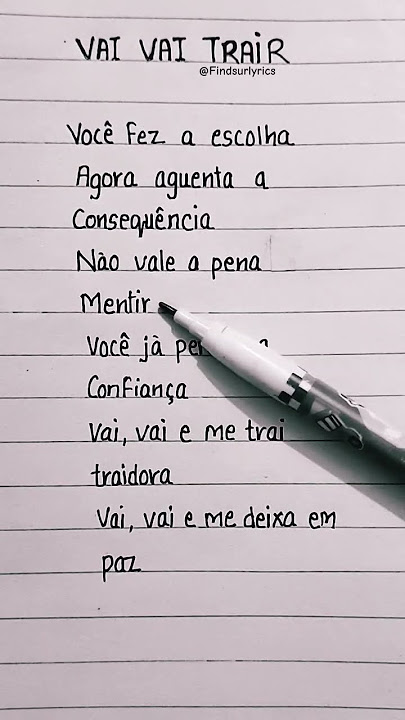 VAI VAI TRAIR
@Findsurlyrics
Você fez a escolha
Agora aguenta a
Consequência
Não vale a pena
Mentir
Você jà
Confiança
Vai, vai e me trai
traidora
Vai, vai e me deixa em
paz